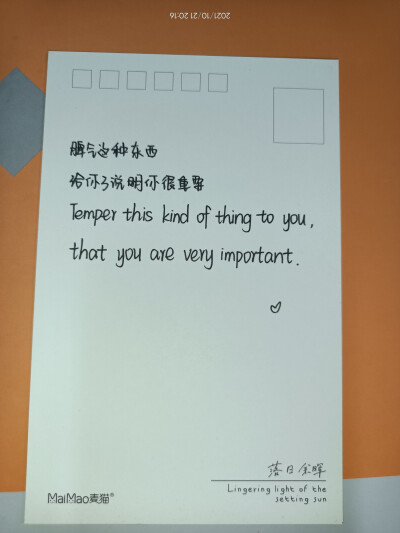 2021/10/21 20:16
脾气这种东西
给你了说明你很重要
Temper this kind of thing to you,
that you are very important.
落日余晖
Lingering light of the
setting sun
MaiMao麦猫®